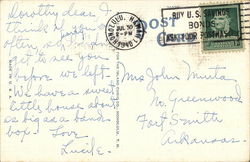 Dorothy dear I
think of you
often, so
get to see you
before we left.
We have a sweet
little house about
as big as a band-
box. Love
Lucile.
POST
CARD
HONOLULU, HAWAII
JUL 30
PM
1940
BUY U.S. SAVINGS
BONDS
ASK YOUR POSTMASTER
Mrs John Minta
No. Greenwood
Fort Smith
Arkansas